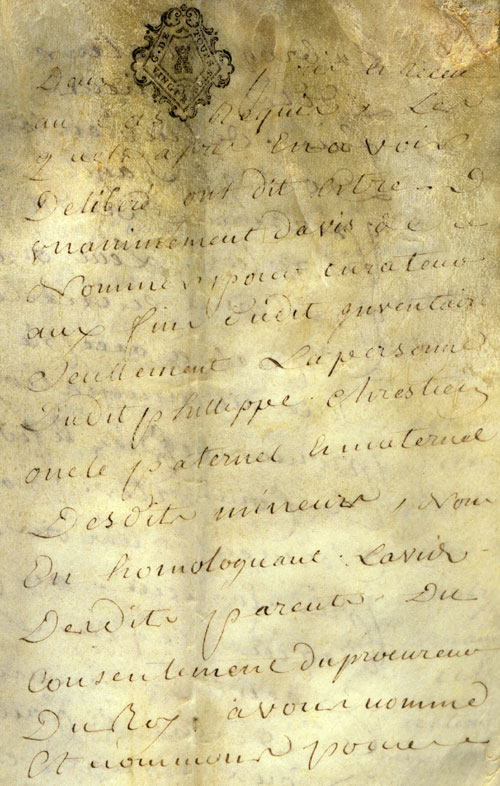 G. DE TOURS
VINGT
au cas Requis, Les
quels après En avoir
Deliberé ont dit estre
Unanimement davis de
Nommer pour curateur
aux fins dudit Inventaire
Seullement La personne
Dudit phillippe Chrestien
oncle paternel & maternel
Desdits mineurs, Nous
En homologuant Lavis
Desdits parents Du
Consentement du procureur
Du Roy, avons nommé
Et nommons pour